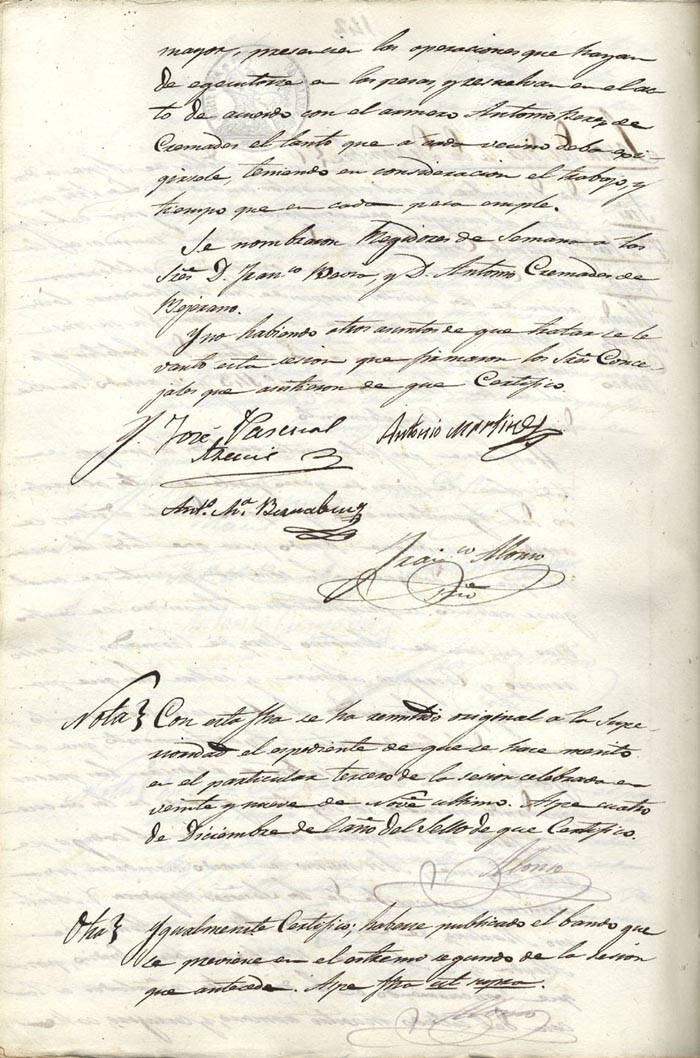 mayor, presencien las operaciones que hayan
de egecutarse en las pesas, y resuelvan en el ac-
to de acuerdo con el armero Antonio Perez de
Cremades el tanto que a cada vecino deba exi-
girsele, teniendo en consideracion el trabajo, y
tiempo que en cada pesa emple.
Se nombraron Regidores de Semana a los
Sres. D. Franco y D. Antonio Cremades de
Bejarano.
Y no habiendo otros asuntos de que tratar se le-
vantó esta sesion que firmaron los Sres. Conce-
jales que asistieron de que Certifico.
José Pascual
Antonio Martinez
Anto. Ma. Bernabeu
Franco Alonso
Srio
Nota} Con esta fha se ha remitido original a la Supe-
rioridad el espediente de que se hace merito
en el particular tercero de la sesion celebrada en
veinte y nueve de Nove. ultimo. Aspe cuatro
de Diciembre del año del Sello de que Certifico.
Alonso
Otra} Ygualmente Certifico; haberse publicado el bando que
se previene en el estremo segundo de la sesion
que antecede. Aspe fha ut supra.
Alonso